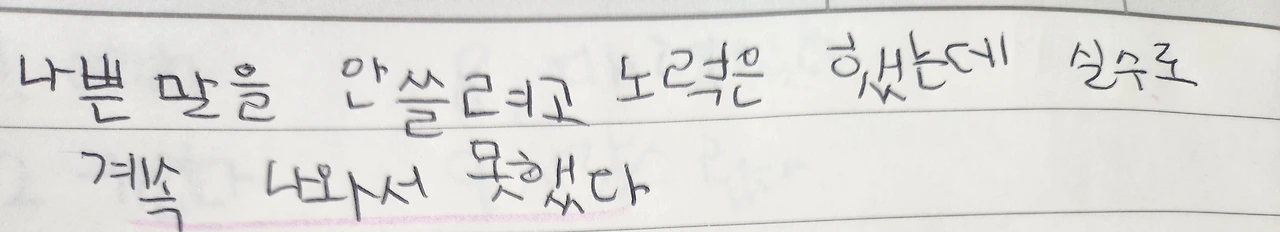 나쁜 말을 안쓸려고 노력은 했는데 실수로
계속 나와서 못했다